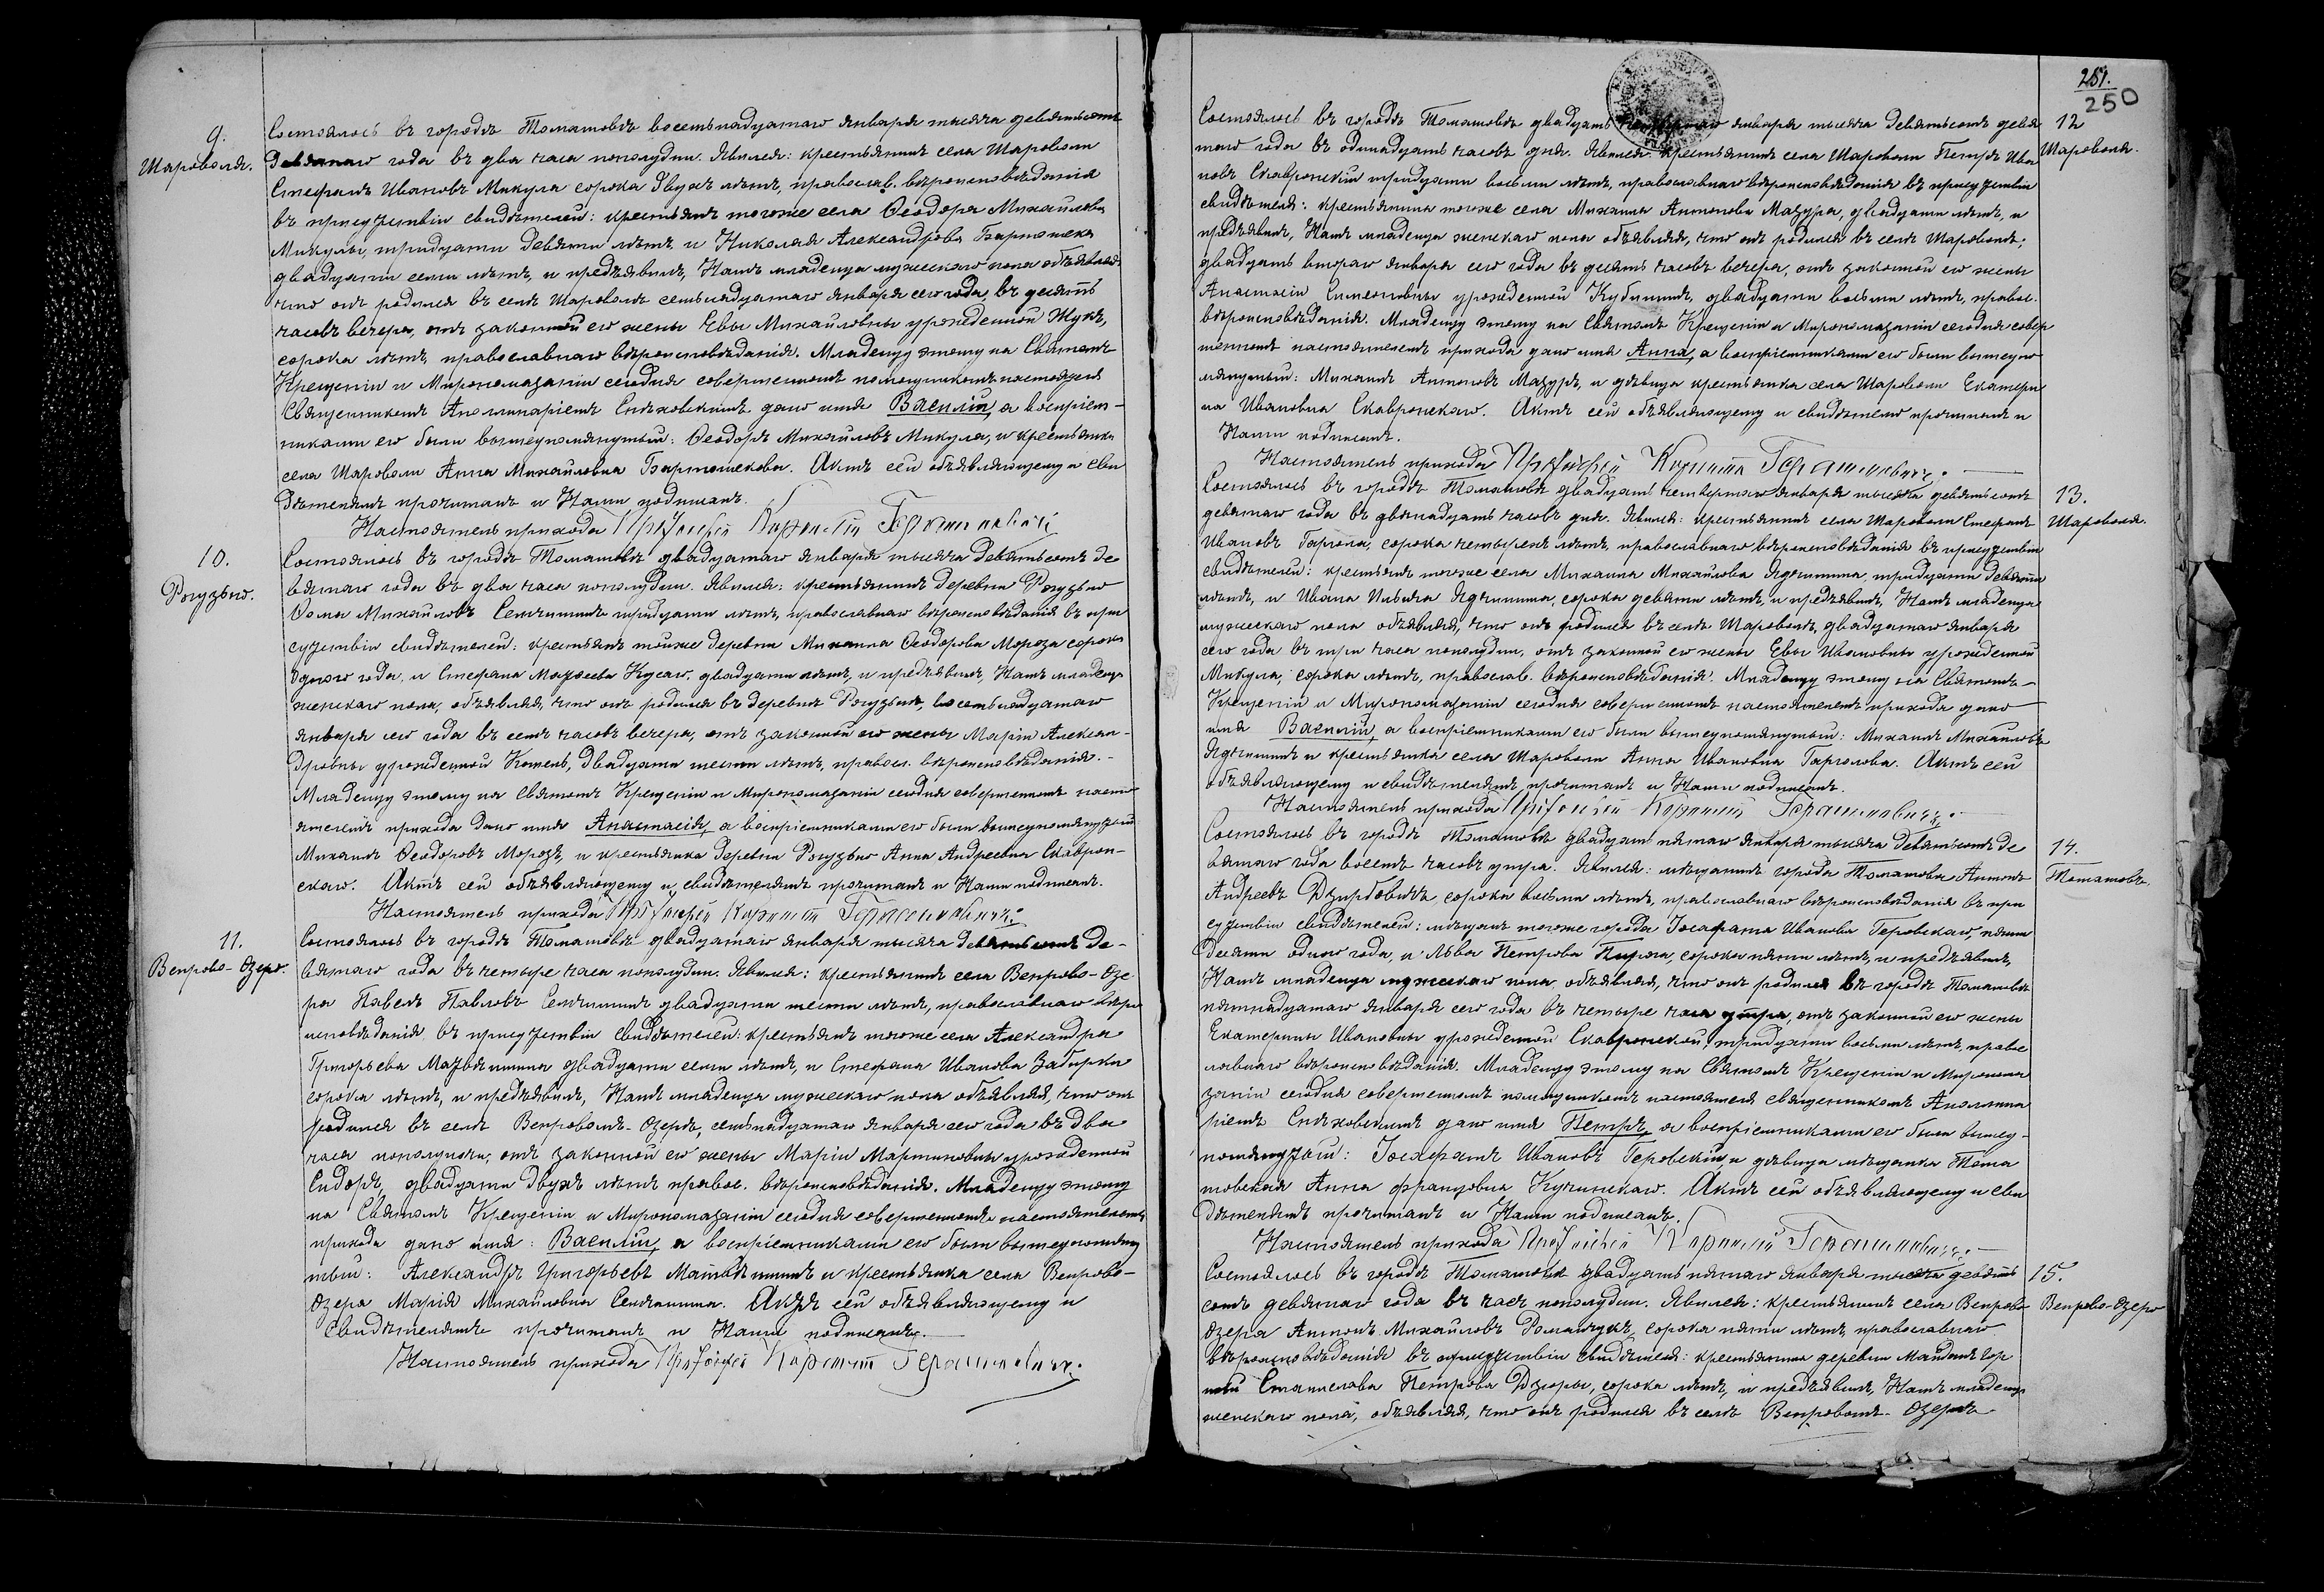 9.
Шароволя.
Состоялось въ городѣ Томашовѣ восемьнадцатаго января тысяча девятьсотъ
девятаго года въ два часа пополудни. Явился: крестьянинъ села Шароволи
Стефанъ Ивановъ Микула сорока двухъ лѣтъ, православ. вѣроисповѣданія
въ присутствіи свидѣтелей: крестьянъ тогоже села Ѳеодора Михайлова
Микулы, тридцати девяти лѣтъ и Николая Александрова Бартошека
двадцати семи лѣтъ, и предъявилъ Намъ младенца мужескаго пола объявляя
что онъ родился въ селѣ Шароволѣ семьнадцатаго января сего года въ десять
часовъ вечера, отъ законной его жены Евы Михайловны урожденной Жукъ,
сорока лѣтъ, православнаго вѣроисповѣданія. Младенцу этому на Святомъ
Крещеніи и Миропомазаніи сегодня совершенномъ помощникомъ настоятеля
Священникомъ Аполлинаріемъ Снѣховскимъ дано имя Василій, а воспріем-
никами его были вышеупомянутый: Ѳеодоръ Михайловъ Микула, и крестьянка
села Шароволи Анна Михайловна Бартошекова. Актъ сей объявляющему и сви
дѣтелямъ прочитанъ и Нами подписанъ.
Настоятель прихода Протоіерей Корнилій Гераминовичъ
10.
Рогузьно.
Состоялось въ городѣ Томашовѣ двадцатаго января тысяча девятьсотъ де
вятаго года въ два часа пополудни. Явился: крестьянинъ деревни Рогузьно
Ѳома Михайловъ Сенчишинъ тридцати лѣтъ, православнаго вѣроисповѣданія въ при
сутствіи свидѣтелей: крестьянъ тойже деревни Михаила Ѳеодорова Мороза сорока
одного года, и Стефана Моѵсеева Кусяго, двадцати лѣтъ, и предъявилъ Намъ младенца
женскаго пола, объявляя, что онъ родился въ деревнѣ Рогузьнѣ, восемьнадцатаго
января сего года въ семь часовъ вечера, отъ законной его жены Маріи Алексан-
дровны урожденной Кошель, двадцати шести лѣтъ, правосл. вѣроисповѣданія. -
Младенцу этому на Святомъ Крещеніи и Миропомазаніи сегодня совершенномъ насто
ятелемъ прихода дано имя Анастасія, а воспріемниками его были вышеупомянутый
Михаилъ Ѳеодоровъ Морозъ, и крестьянка деревни Рогузьно Анна Андреевна Скаврон-
скаго. Актъ сей объявляющему и свидѣтелямъ прочитанъ и Нами подписанъ.
Настоятель прихода Протоіерей Корнилій Гераминовичъ
11.
Вепрово-Озеро.
Состоялось въ городѣ Томашовѣ двадцатаго января тысяча девятьсотъ де-
вятаго года въ четыре часа пополудни. Явился: крестьянинъ села Вепрово-Озе
ра Павелъ Павловъ Сенчишинъ двадцати шести лѣтъ, православнаго вѣро
исповѣданія въ присутствіи свидѣтелей: крестьянъ тогоже села Александра
Григорьева Матвѣишина двадцати семи лѣтъ, и Стефана Иванова Забирка
сорока лѣтъ, и предъявилъ, Намъ младенца мужескаго пола объявляя, что онъ
родился въ селѣ Вепровомъ-Озерѣ, семьнадцатаго января сего года въ два
часа пополуночи, отъ законной его жены Маріи Мартиновны урожденной
Сидоръ, двадцати двухъ лѣтъ правос. вѣроисповѣданія. Младенцу этому
на Святомъ Крещеніи и Миропомазаніи сегодня совершенномъ настоятелемъ
прихода дано имя: Василій, а воспріемниками его были вышеупомяну
тый: Александръ Григорьевъ Матвѣишинъ и крестьянка села Вепрово-
Озера Марія Михайловна Сенчишина. Актъ сей объявляющему и
свидѣтелямъ прочитанъ и Нами подписанъ.
Настоятель прихода Протоіерей Корнилій Гераминовичъ.
251.
250
12
Шароволя.
Состоялось въ городѣ Томашовѣ двадцать января тысяча девятьсотъ девя
таго года въ одинадцать часовъ дня. Явился: крестьянинъ села Шароволи Петръ Ива
новъ Скавронскій тридцати восьми лѣтъ, православнаго вѣроисповѣданія въ присутствіи
свидѣтеля: крестьянина тогоже села Михаила Антонова Мазура, двадцати лѣтъ, и
предъявилъ, Намъ младенца женскаго пола объявляя, что онъ родился въ селѣ Шароволѣ;
двадцать втораго января сего года въ десять часовъ вечера, отъ законной его жены
Анастасіи Симеоновны урожденной Кубишинъ, двадцати восьми лѣтъ, правос.
вѣроисповѣданія. Младенцу этому на Святомъ Крещеніи и Миропомазаніи сегодня совер
шенномъ настоятелемъ прихода дано имя Анна, а воспріемниками его были вышеупо
мянутый: Михаилъ Антоновъ Мазуръ, и дѣвица крестьянка села Шароволи Екатери
на Ивановна Скавронскаго. Актъ сей объявляющему и свидѣтелю прочитанъ и
Нами подписанъ.
Настоятель прихода Протоіерей Корнилій Гераминовичъ.
13.
Шароволя.
Состоялось въ городѣ Томашовѣ двадцать четвертаго января тысяча девятьсотъ
девятаго года въ двѣнадцать часовъ дня. Явился: крестьянинъ села Шароволи Стефанъ
Ивановъ Гаргола, сорока четырехъ лѣтъ, православнаго вѣроисповѣданія въ присутствіи
свидѣтелей: крестьянъ тогоже села Михаила Михайлова Ядчишина, тридцати девяти
лѣтъ, и Ивана Ядчишина, сорока девяти лѣтъ, и предъявилъ, Намъ младенца
мужескаго пола объявляя, что онъ родился въ селѣ Шароволѣ, двадцатаго января
сего года въ три часа пополудни, отъ законной его жены Евы Ивановны урожденной
Микула, сорока лѣтъ, православ. вѣроисповѣданія. Младенцу этому на Святомъ
Крещеніи и Миропомазаніи сегодня совершенномъ настоятелемъ прихода дано
имя Василій, а воспріемниками его были вышеупомянутый: Михаилъ Михайловъ
Ядчишинъ и крестьянка села Шароволи Анна Ивановна Гарголова. Актъ сей
объявляющему и свидѣтелямъ прочитанъ и Нами подписанъ.
Настоятель прихода Протоіерей Корнилій Гераминовичъ.
14.
Томашовъ.
Состоялось въ городѣ Томашовѣ двадцать пятаго января тысяча девятьсотъ де
вятаго года восемь часовъ утра. Явился: мѣщанинъ города Томашова Антонъ
Андреевъ сорока восьми лѣтъ, православнаго вѣроисповѣданія въ при
сутствіи свидѣтелей: мѣщанъ тогоже города Іосафата Иванова Геровскаго, пяти
десяти одного года, и Льва Петрова Пирога, сорока пяти лѣтъ, и предъявилъ,
Намъ младенца мужескаго пола объявляя, что онъ родился въ городѣ Томашовѣ
пятнадцатаго января сего года въ четыре часа утра, отъ законной его жены
Екатерины Ивановны урожденной Скавронской, тридцати восьми лѣтъ, правос
лавнаго вѣроисповѣданія. Младенцу этому на Святомъ Крещеніи и Миропома
заніи сегодня совершенномъ помощникомъ настоятеля священникомъ Аполлина
ріемъ Снѣховскимъ дано имя Петръ, а воспріемниками его были вышеу-
помянутый: Іосафатъ Ивановъ Геровскій, и дѣвица мѣщанка Тома
шовская Анна Францовна Кучинскаго. Актъ сей объявляющему и сви
дѣтелямъ прочитанъ и Нами подписанъ.
Настоятель прихода Протоіерей Корнилій Гераминовичъ.
15.
Вепрово-Озеро
Состоялось въ городѣ Томашовѣ двадцать пятаго января тысяча девять
сотъ девятаго года въ часъ пополудни. Явился: крестьянинъ села Вепрово
Озера Антонъ Михайловъ Романчукъ, сорока пяти лѣтъ, православнаго
вѣроисповѣданія въ присутствіи свидѣтеля: крестьянина деревни Майданъ Гор
ный Станислава Петрова Дзюры, сорока лѣтъ, и предъявилъ, Намъ младенца
женскаго пола, объявляя, что онъ родился въ селѣ Вепровомъ-Озерѣ